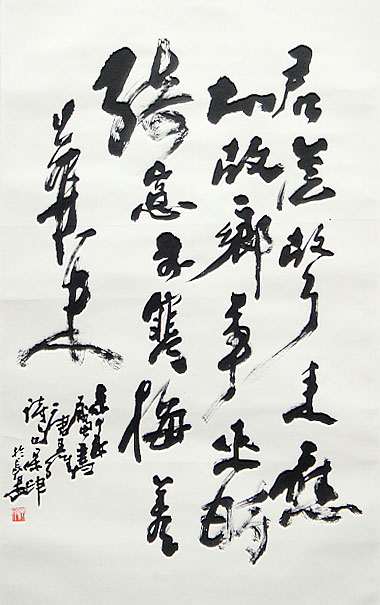 君自故乡来應
知故鄉事来日
綺窓前寒梅著
花未